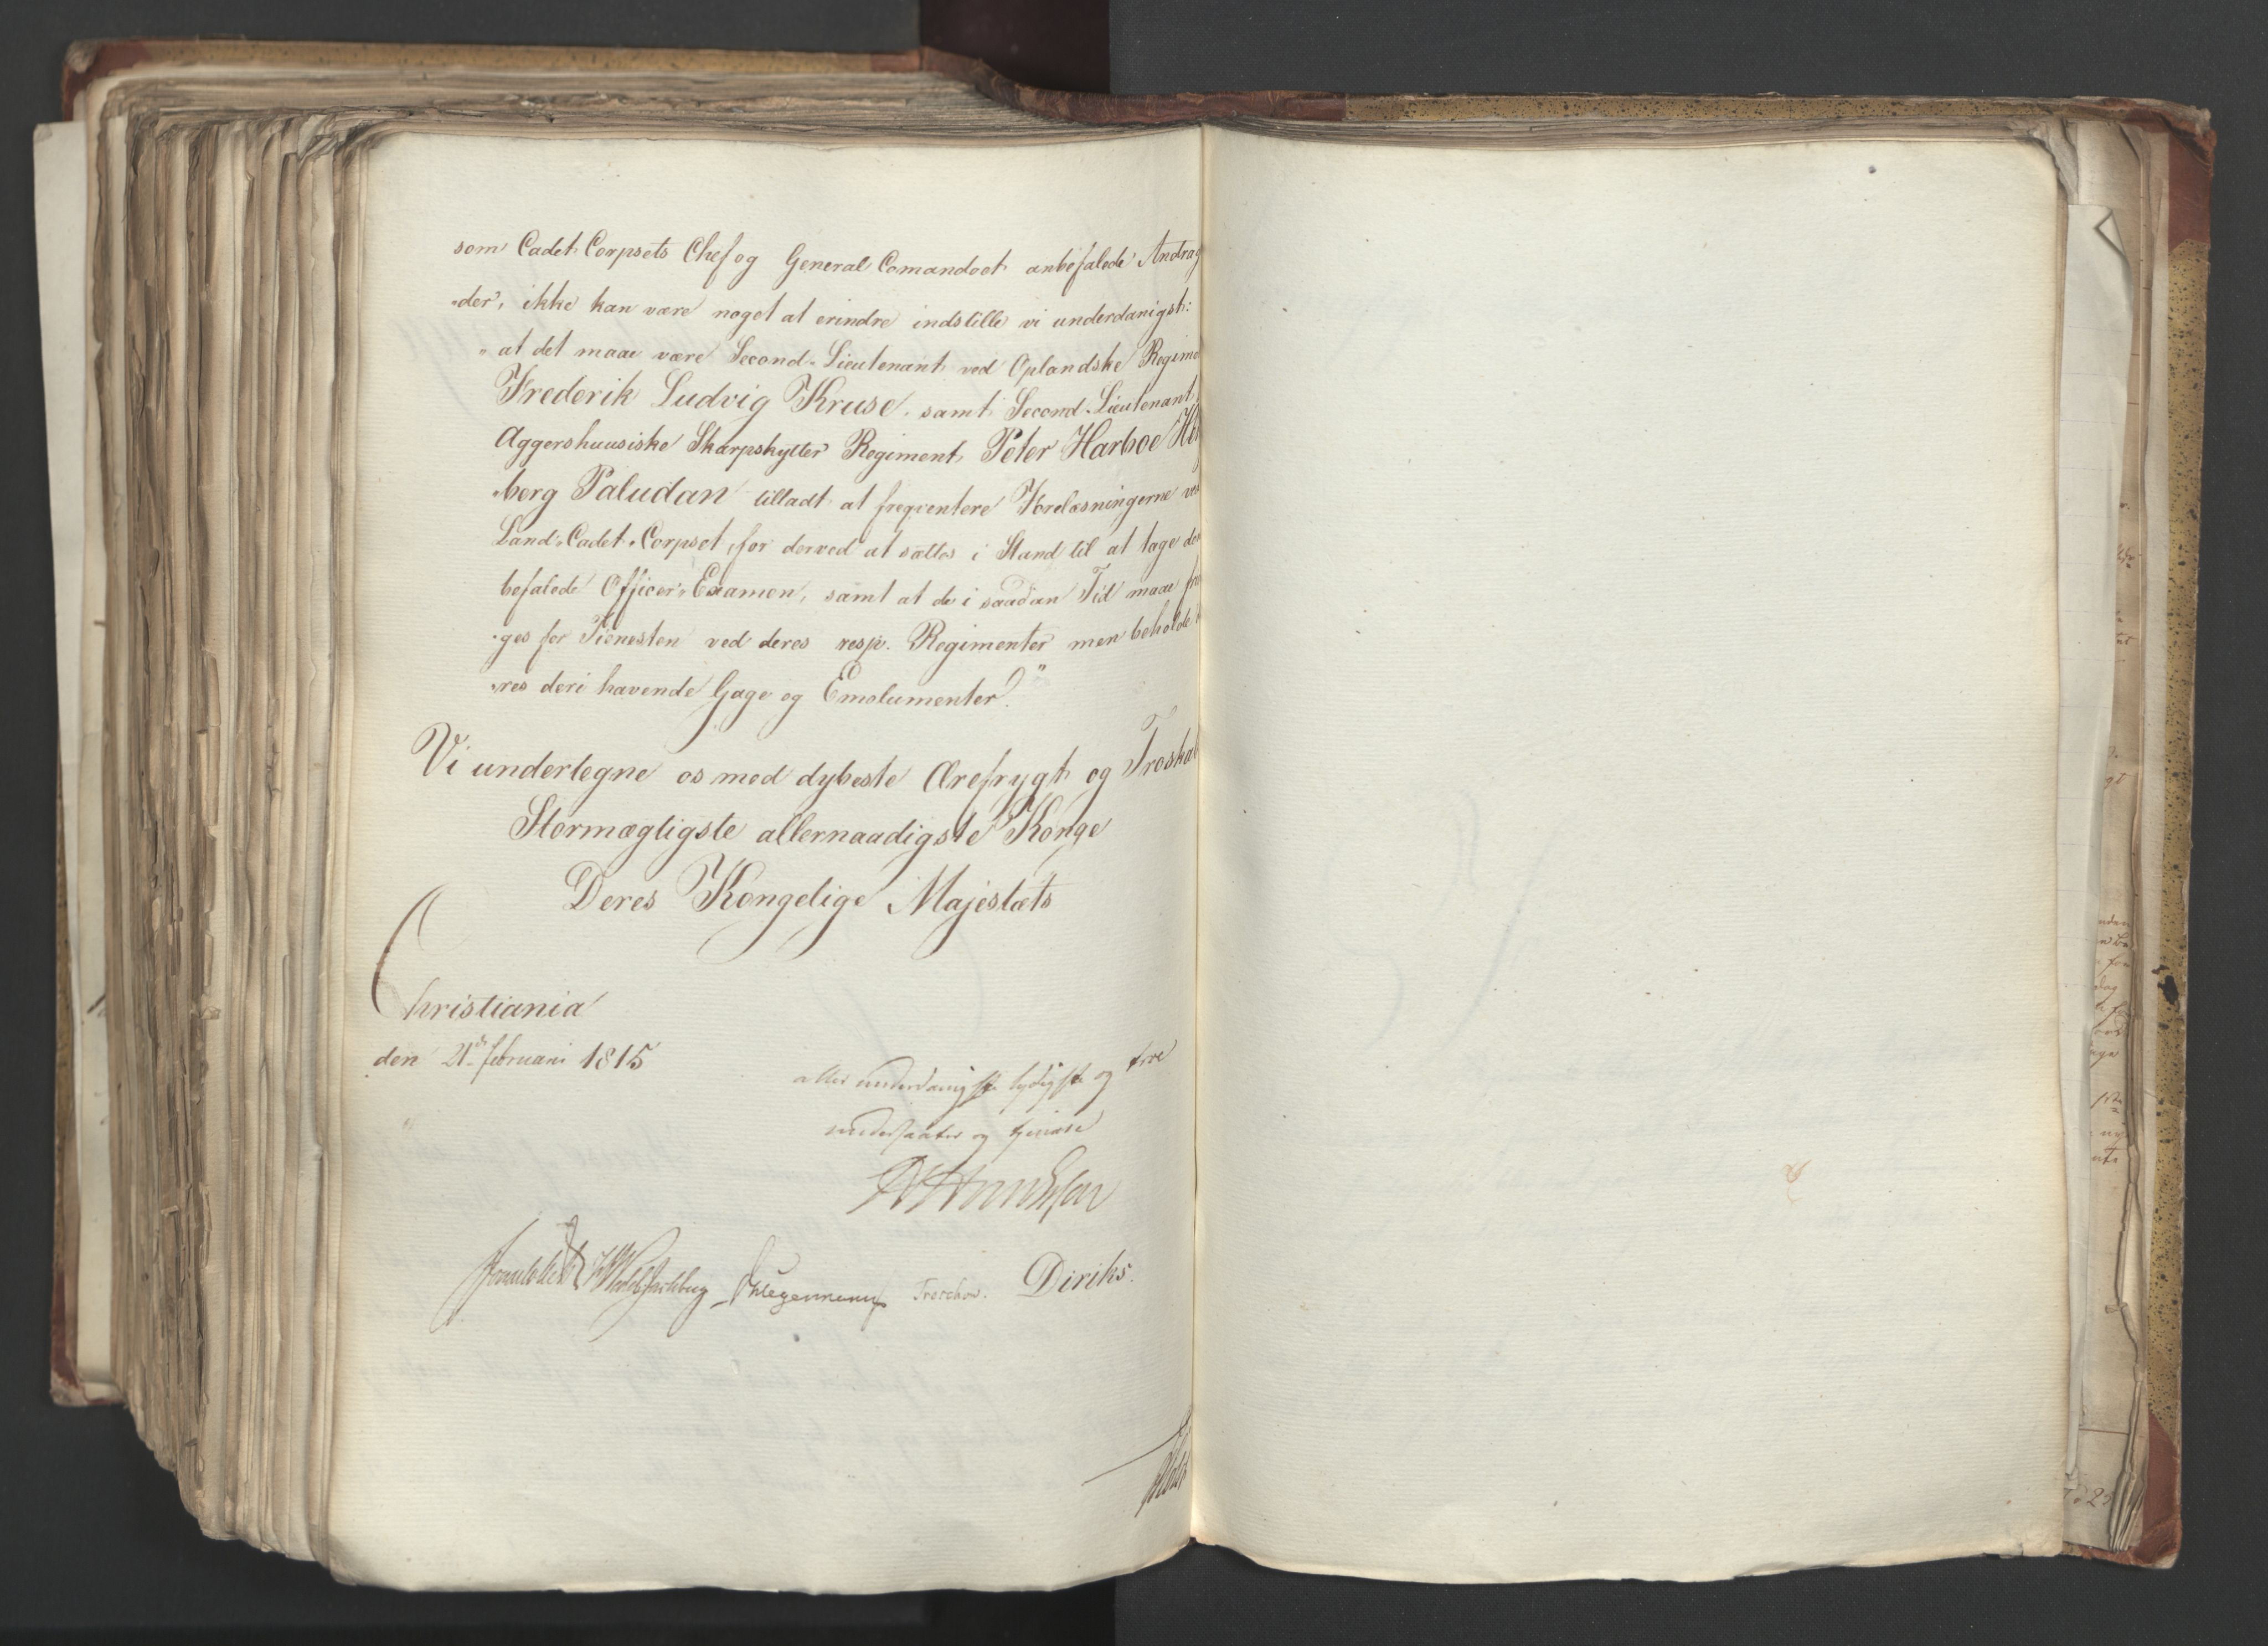 som Cadet Corpsets Chef og General Comandoet anbefalede Andrag
-der, ikke kan være noget at erindre indstille vi underdanigst:
"at det maae være Second-Lieutenant ved Oplandske Regime
Frederik Ludvig Kruse, samt Second-Lieutenant
Aggershuusiske Skarpskytter Regiment, Peter Harboe
-berg Paludan tilladt at freqventere Forelæsningerne ved
Land-Cadet-Corpset, for derved at sættes i Stand til at tage den
befalede Officer-Examen, samt at de i saadan Tid maae
-ges for Tienesten ved deres resp. Regimenter men beholde
-res deri havende Gage og Emolumenter."
Vi undertegne os med dybeste Ærefrygt og Troskab
Stormægtigste allernaadigste Konge
Deres Kongelige Majestæts
Christiania
den 21de februari 1815
aller underdanigste lydigste og troe
undersaatter og tjenere
Diriks.
Treschow.